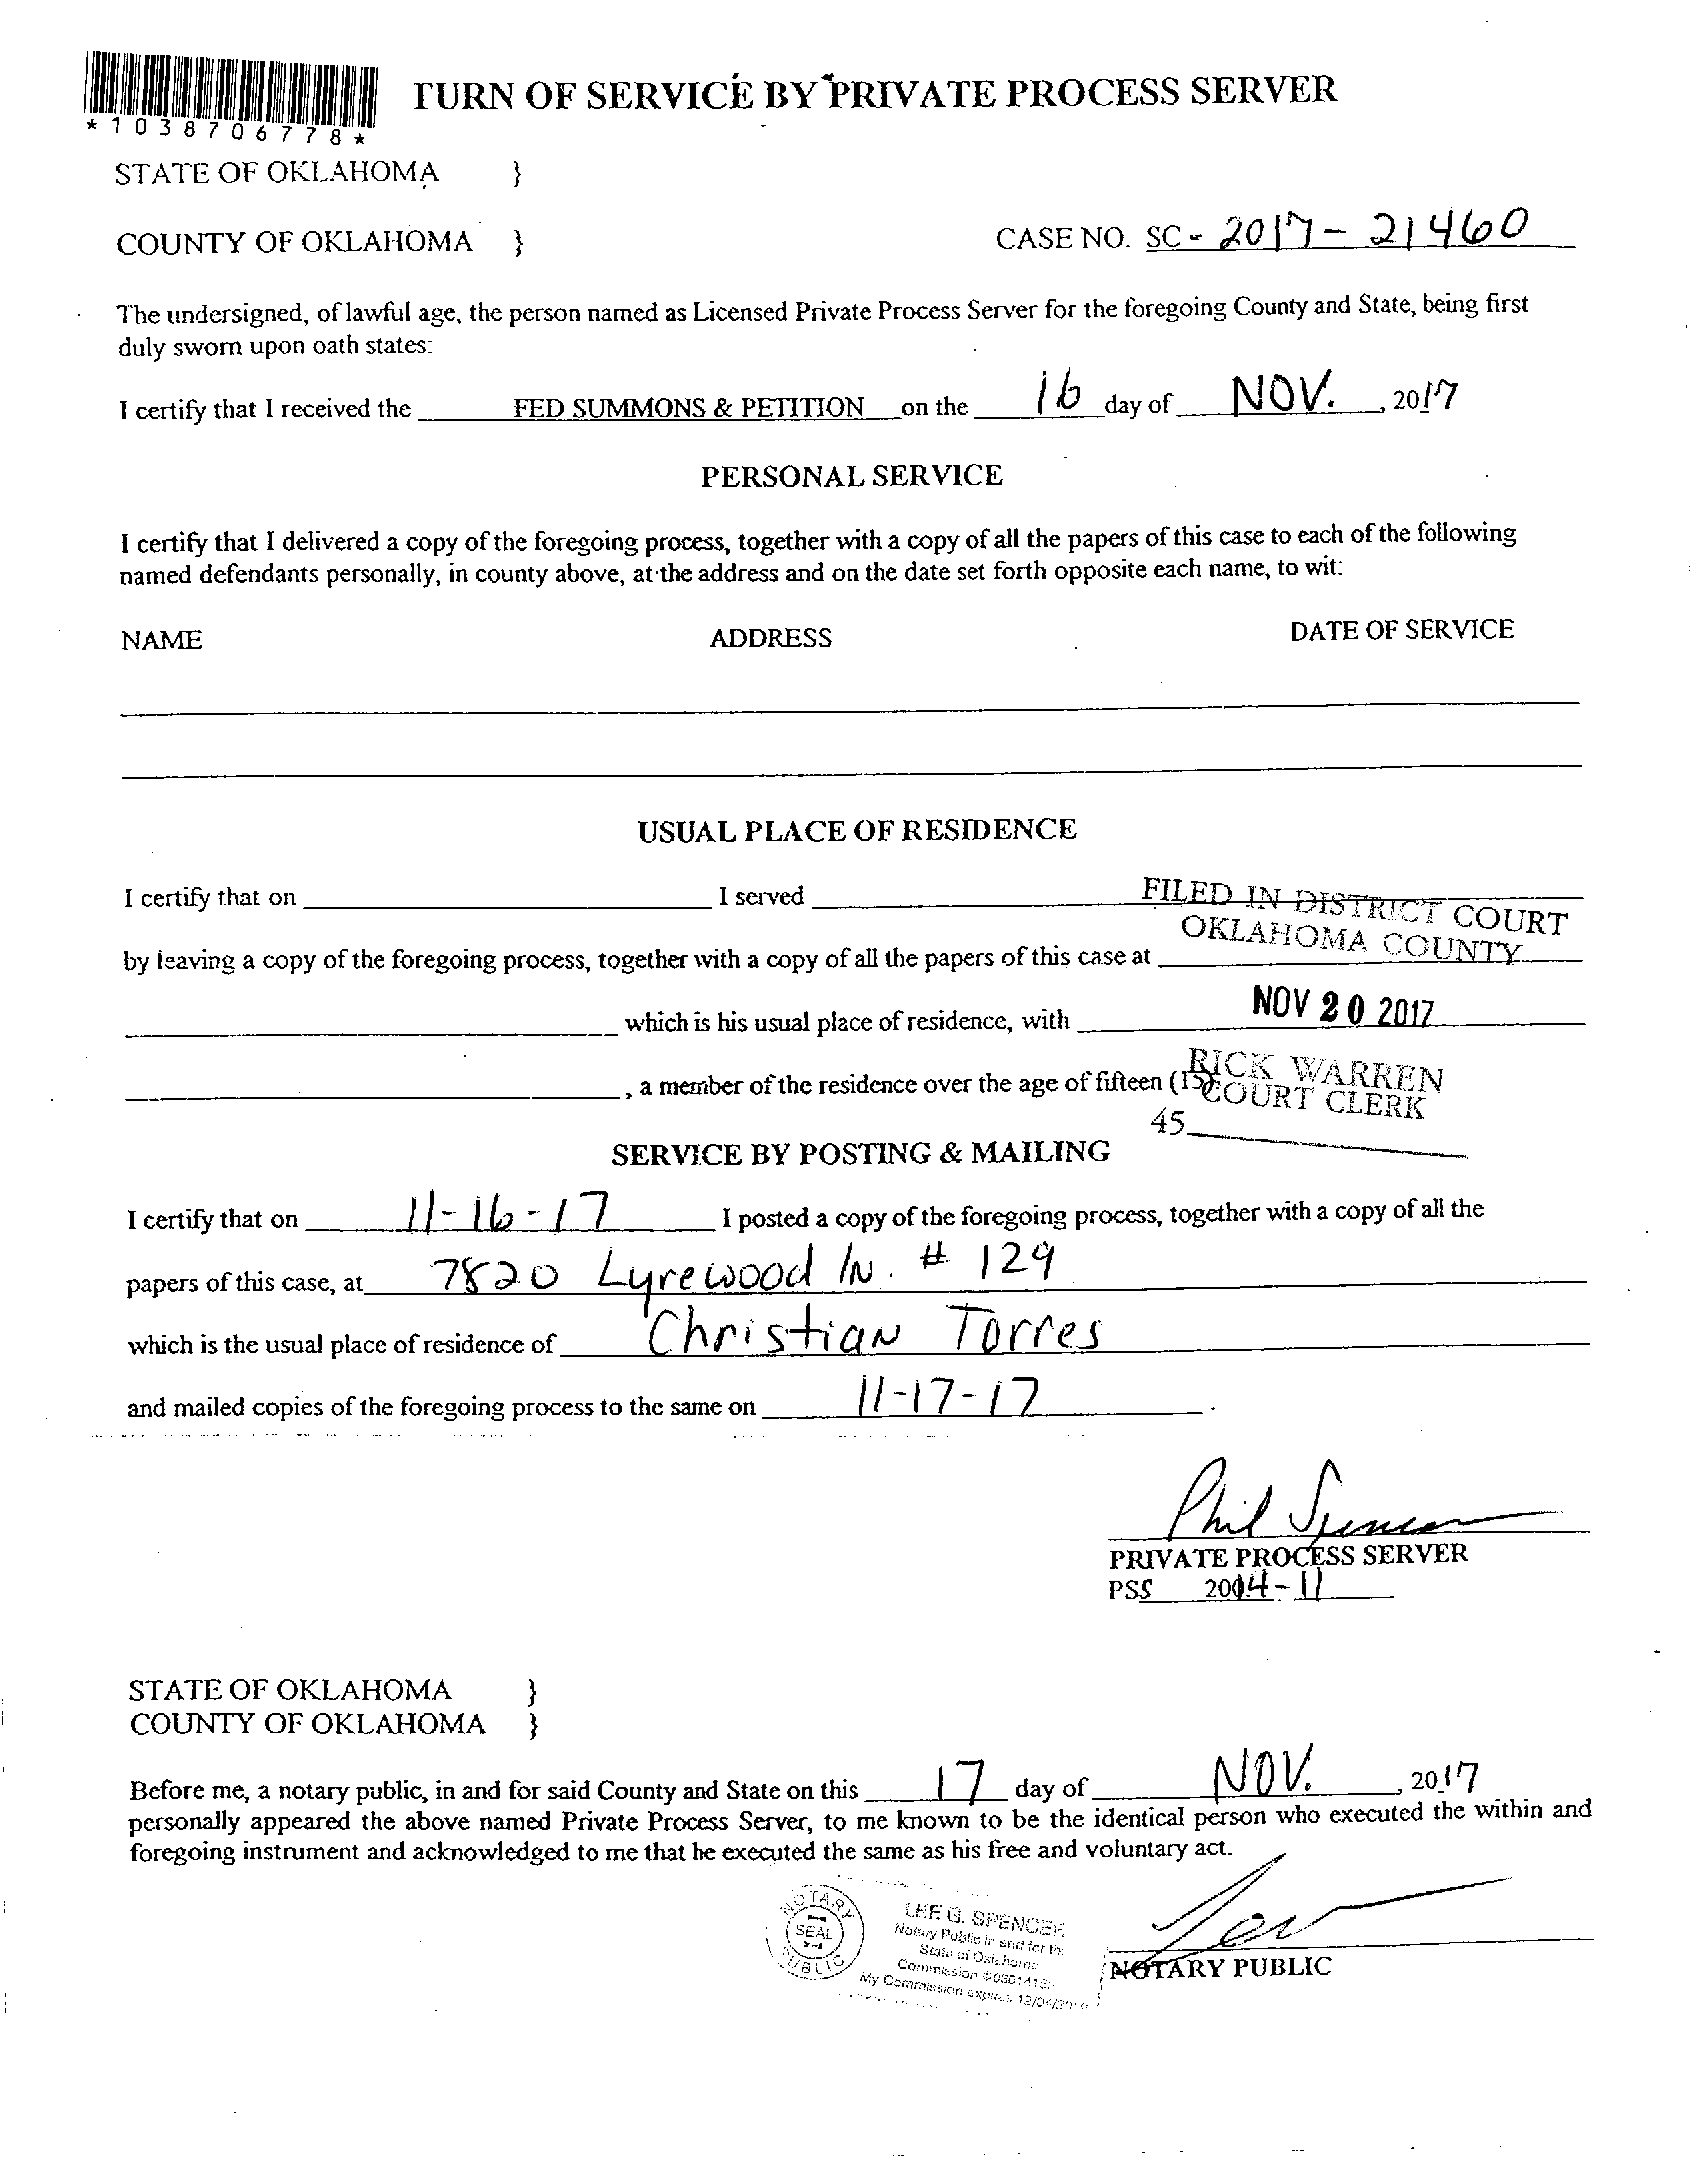 TURN OF SERVICE BY PRIVATE PROCESS SERVER
*1038706778*
STATE OF OKLAHOMA }
COUNTY OF OKLAHOMA } CASE NO. SC - 2017 - 21460
The undersigned, of lawful age, the person named as Licensed Private Process Server for the foregoing County and State, being first
duly sworn upon oath states:
I certify that I received the FED SUMMONS & PETITION on the 16 day of NOV. , 2017
PERSONAL SERVICE
I certify that I delivered a copy of the foregoing process, together with a copy of all the papers of this case to each of the following
named defendants personally, in county above, at the address and on the date set forth opposite each name, to wit:
NAME ADDRESS DATE OF SERVICE
USUAL PLACE OF RESIDENCE
I certify that on I served
FILED IN DISTRICT COURT
OKLAHOMA COUNTY
by leaving a copy of the foregoing process, together with a copy of all the papers of this case at
NOV 20 2017
which is his usual place of residence, with
RICK WARREN
, a member of the residence over the age of fifteen (15)
COURT CLERK
45
SERVICE BY POSTING & MAILING
I certify that on 11-16-17 I posted a copy of the foregoing process, together with a copy of all the
papers of this case, at 7820 Lyrewood ln. # 129
which is the usual place of residence of Christian Torres
and mailed copies of the foregoing process to the same on 11-17-17 .
Phil Spencer
PRIVATE PROCESS SERVER
PSS 2004-11
STATE OF OKLAHOMA }
COUNTY OF OKLAHOMA }
Before me, a notary public, in and for said County and State on this 17 day of NOV. , 2017
personally appeared the above named Private Process Server, to me known to be the identical person who executed the within and
foregoing instrument and acknowledged to me that he executed the same as his free and voluntary act.
NOTARY
SEAL
PUBLIC
LEE G. SPENCER
Notary Public in and for the
State of Oklahoma
Commission
My Commission expires
NOTARY PUBLIC